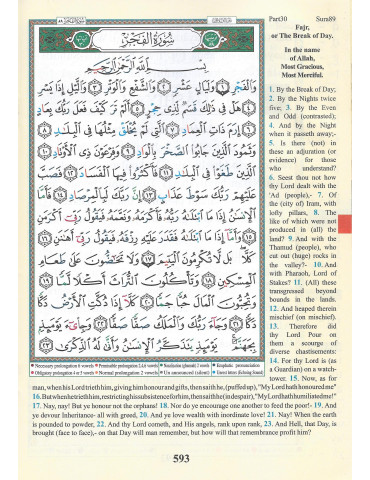 Part30 Sura89
سُورَةُ الفَجْرِ
بِسْمِ ٱللَّهِ ٱلرَّحْمَٰنِ ٱلرَّحِيمِ
وَٱلْفَجْرِ ١ وَلَيَالٍ عَشْرٍ ٢ وَٱلشَّفْعِ وَٱلْوَتْرِ ٣ وَٱلَّيْلِ إِذَا يَسْرِ
٤ هَلْ فِى ذَٰلِكَ قَسَمٌ لِّذِى حِجْرٍ ٥ أَلَمْ تَرَ كَيْفَ فَعَلَ رَبُّكَ بِعَادٍ
٦ إِرَمَ ذَاتِ ٱلْعِمَادِ ٧ ٱلَّتِى لَمْ يُخْلَقْ مِثْلُهَا فِى ٱلْبِلَٰدِ ٨
وَثَمُودَ ٱلَّذِينَ جَابُوا۟ ٱلصَّخْرَ بِٱلْوَادِ ٩ وَفِرْعَوْنَ ذِى ٱلْأَوْتَادِ ١٠
ٱلَّذِينَ طَغَوْا۟ فِى ٱلْبِلَٰدِ ١١ فَأَكْثَرُوا۟ فِيهَا ٱلْفَسَادَ ١٢ فَصَبَّ
عَلَيْهِمْ رَبُّكَ سَوْطَ عَذَابٍ ١٣ إِنَّ رَبَّكَ لَبِٱلْمِرْصَادِ ١٤ فَأَمَّا
ٱلْإِنسَٰنُ إِذَا مَا ٱبْتَلَىٰهُ رَبُّهُۥ فَأَكْرَمَهُۥ وَنَعَّمَهُۥ فَيَقُولُ رَبِّىٓ أَكْرَمَنِ
١٥ وَأَمَّآ إِذَا مَا ٱبْتَلَىٰهُ فَقَدَرَ عَلَيْهِ رِزْقَهُۥ فَيَقُولُ رَبِّىٓ أَهَٰنَنِ ١٦
كَلَّا بَل لَّا تُكْرِمُونَ ٱلْيَتِيمَ ١٧ وَلَا تَحَٰٓضُّونَ عَلَىٰ طَعَامِ
ٱلْمِسْكِينِ ١٨ وَتَأْكُلُونَ ٱلتُّرَاثَ أَكْلًا لَّمًّا ١٩
وَتُحِبُّونَ ٱلْمَالَ حُبًّا جَمًّا ٢٠ كَلَّآ إِذَا دُكَّتِ ٱلْأَرْضُ دَكًّا
دَكًّا ٢١ وَجَآءَ رَبُّكَ وَٱلْمَلَكُ صَفًّا صَفًّا ٢٢ وَجِا۟ىٓءَ يَوْمَئِذٍ
بِجَهَنَّمَ يَوْمَئِذٍ يَتَذَكَّرُ ٱلْإِنسَٰنُ وَأَنَّىٰ لَهُ ٱلذِّكْرَىٰ ٢٣
Fajr,
or The Break of Day.
In the name
of Allah,
Most Gracious,
Most Merciful.
1. By the Break of Day;
2. By the Nights twice
five; 3. By the Even
and Odd (contrasted);
4. And by the Night
when it passeth away;-
5. Is there (not) in
these an adjuration (or
evidence) for those
who understand?
6. Seest thou not how
thy Lord dealt with the
'Ad (people),- 7. Of
the (city of) Iram, with
lofty pillars, 8. The
like of which were not
produced in (all) the
land? 9. And with the
Thamud (people), who
cut out (huge) rocks in
the valley?- 10. And
with Pharaoh, Lord of
Stakes? 11. (All) these
transgressed beyond
bounds in the lands.
12. And heaped therein
mischief (on mischief).
13. Therefore did
thy Lord Pour on
them a scourge of
diverse chastisements:
14. For thy Lord is (as
a Guardian) on a watch-
tower. 15. Now, as for
man, when his Lord trieth him, giving him honour and gifts, then saith he, (puffed up), "My Lord hath honoured me"
16. But when he trieth him, restricting his subsistence for him, then saith he (in despair), "My Lord hath humiliated me!"
17. Nay, nay! But ye honour not the orphans! 18. Nor do ye encourage one another to feed the poor!- 19. And
ye devour Inheritance- all with greed, 20. And ye love wealth with inordinate love! 21. Nay! When the earth
is pounded to powder, 22. And thy Lord cometh, and His angels, rank upon rank, 23. And Hell, that Day, is
brought (face to face),- on that Day will man remember, but how will that remembrance profit him?
593